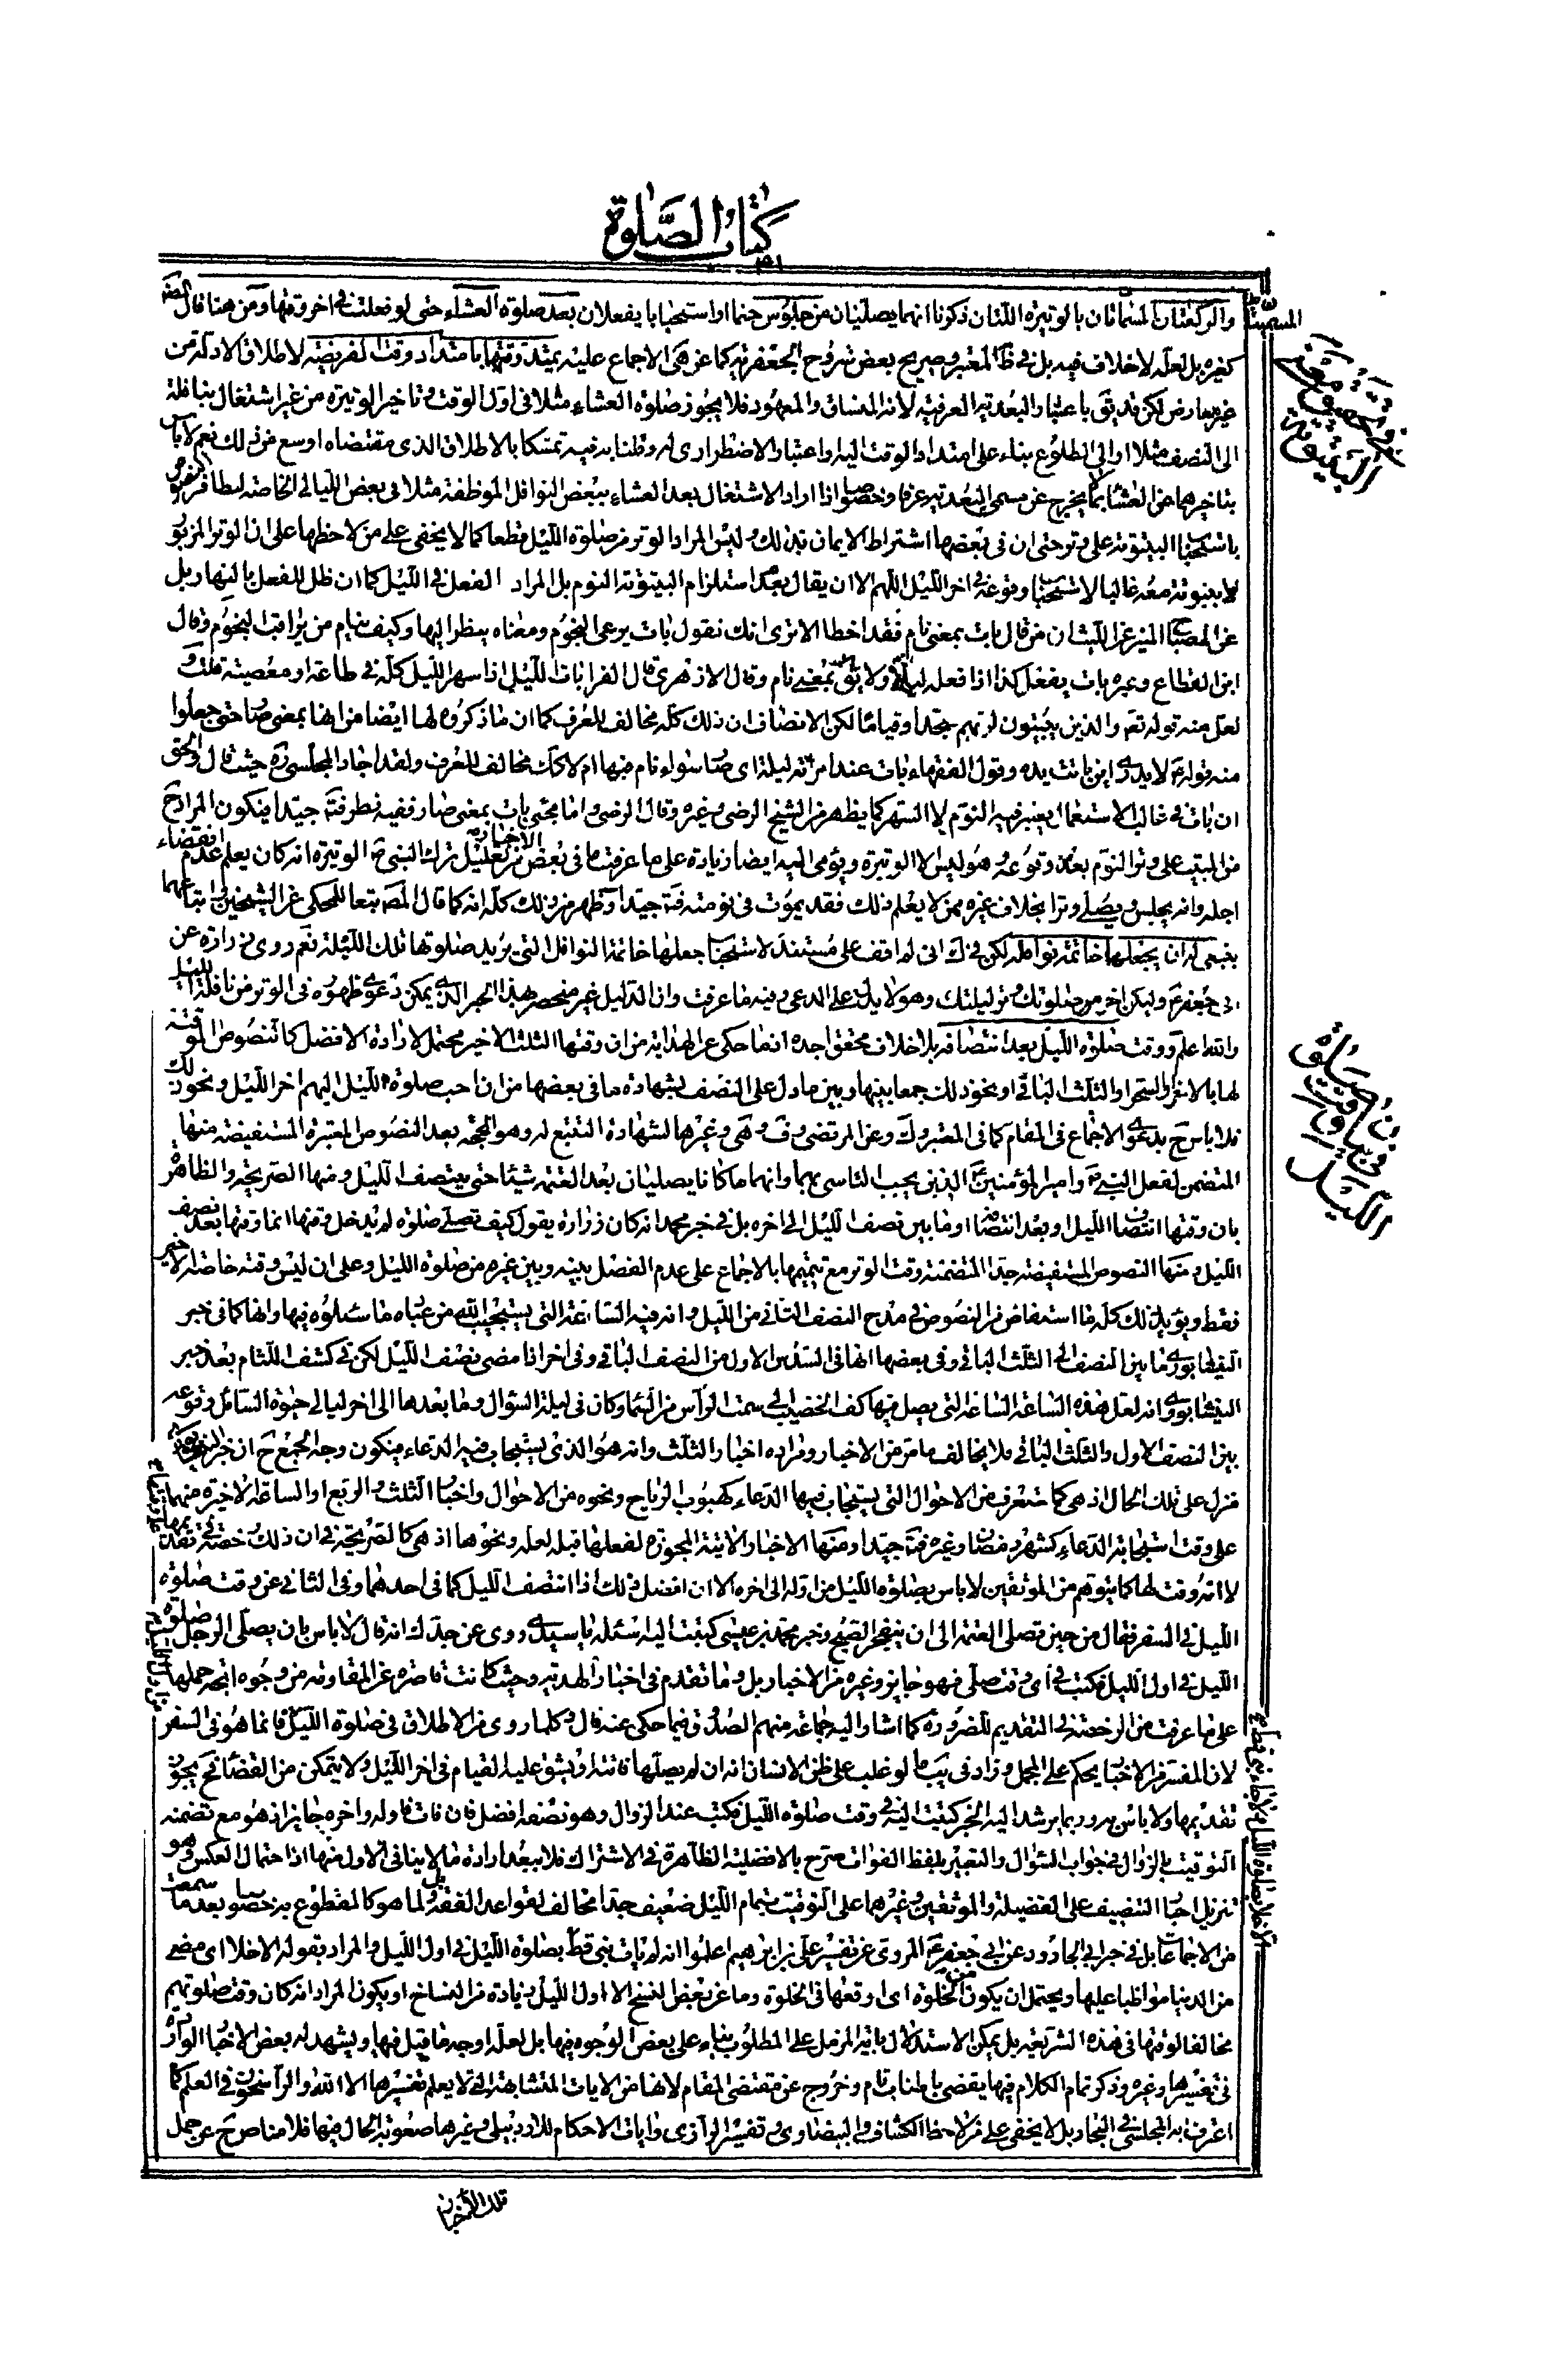 كتاب الصلوة
والركعتان المسماتان بالوتيرة اللتان ذكرنا انهما يصليان من جلوس حتما او استحبابا يفعلان بعد صلوة العشاء حتى لو فعلت في اخر وقتها ومن هنا قال المصنف
كغيره بل لعله لا خلاف فيه بل في ظاهر المعتبر وصريح بعض شروح الجعفرية كما عن هى الاجماع عليه يمتد وقتها بامتداد وقت الفريضة لاطلاق الادلة من
غير معارض لكن قد يق باعتبار البعدية العرفية لانه المنساق والمعهود فلا يجوز صلوة العشاء مثلا في اول الوقت وتاخير الوتيرة من غير اشتغال بنافلة
الى النصف مثلا او الى الطلوع بناء على امتداد الوقت اليه واعتبار الاضطراري له وقلنا به فيه تمسكا بالاطلاق الذى مقتضاه اوسع من ذلك نعم لا باس
بتاخيرهما عن العشاء بما لا يخرج عن مسمى البعدية عرفا وخصوصا اذا اراد الاشتغال بعد العشاء ببعض النوافل الموظفة مثلا في بعض الليالي الخاصة لتظافر النصوص
باستحباب البيتوتة على وتر حتى ان في بعضها اشتراط الايمان بذلك وليس المراد الوتر من صلوة الليل قطعا كما لا يخفى على من لاحظها على ان الوتر المزبور
لا بيتوتة معه غالبا لاستحباب وقوعه في اخر الليل اللهم الا ان يقال بعدم استلزام البيتوتة النوم بل المراد الفعل في الليل كما ان ظل للفعل بالنهار بل
عن المصباح المنير عن الليث ان من قال بات بمعنى نام فقد اخطا الا ترى انك تقول بات يرعى النجوم ومعناه ينظر اليها وكيف ينام من يراقب النجوم وقال
ابن القطاع وغيره بات يفعل كذا اذا فعله ليلا ولا يق بمعنى نام وقال الازهري قال الفراء بات الليل اذا سهر الليل كله في طاعة او معصية قلت و
لعل منه قوله تع والذين يبيتون لربهم سجدا وقياما لكن الانصاف ان ذلك كله مخالف للعرف كما ان ما ذكروه لها ايضا من انها بمعنى صار حتى جعلوا
منه قوله ع لا يدرى اين باتت يده وقول الفقهاء بات عند امراته ليلة اى صار سواء نام فيها ام لا كك مخالف للعرف ولقد اجاد المجلسى ره حيث قال والحق
ان بات في غالب الاستعمال يعتبر فيه النوم لا السهر كما يظهر من الشيخ الرضى وغيره وقال الرضى واما مجئ بات بمعنى صار ففيه نظر فته جيدا فيكون المراد ح
من المبيت على وتر النوم بعد وقوعه وهو ليس الا الوتيرة ويؤمى اليه ايضا زيادة على ما عرفت ما في بعض الاخبار من تعليل ترك النبى ص الوتيرة انه كان يعلم عدم انقضاء
اجله وانه يجلس ويصلى وترا بخلاف غيره ممن لا يعلم ذلك فقد يموت في نومته فته جيدا وظهر من ذلك كله انه كما قال المصه تبعا للمحكى عن الشيخين واتباعهما
ينبغى له ان يجعلهما خاتمة نوافله لكن في ك انى لم اقف على مستنده لاستحباب جعلها خاتمة النوافل التى يريد صلوتها تلك الليلة نعم روى زرارة عن
ابى جعفر ع وليكن اخر صلوتك وتر ليلتك وهو لا يدل على المدعى وفيه ما عرفت وان الدليل غير منحصر بهذا الخبر الذى يمكن دعوى ظهوره في الوتر من نافلة الليل
والله اعلم ووقت صلوة الليل بعد انتصافه بلا خلاف محقق اجده انما حكى عن الهداية من ان وقتها الثلث الاخير محتمل لارادة الافضل كالنصوص الموقتة
لها بالاخر والسحر او الثلث الباقى او نحو ذلك جمعا بينها وبين ما دل على النصف بشهادة ما في بعضها من ان احب صلوة الليل اليهم اخر الليل ونحو ذلك
فلا باس ح بدعوى الاجماع في المقام كما في المعتبر وك وعن المرتضى وف وهى وغيرها لشهادة التتبع له وهو الحجة بعد النصوص المعتبرة المستفيضة منها
المتضمن لفعل النبى ص وامير المؤمنين ع الذين يجب التاسى بهما وانهما ما كانا يصليان بعد العتمة شيئا حتى ينتصف الليل ومنها الصريحة والظاهرة
بان وقتها انتصاف الليل او بعد انتصافه او ما بين نصف الليل الى اخره بل في خبر محمد انه كان زرارة يقول كيف تصلى صلوة لم يدخل وقتها انما وقتها بعد نصف
الليل ومنها النصوص المستفيضة جدا المتضمنة وقت الوتر مع تتميمها بالاجماع على عدم الفصل بينه وبين غيره من صلوة الليل وعلى ان ليس وقته خاصة الاخير
فقط ويؤيد ذلك كله ما استفاض من النصوص في مدح النصف الثانى من الليل وانه فيه الساعة التى يستجيب الله من عباده ما سئلوه فيها وانها كما في خبر
النيشابورى ما بين النصف الى الثلث الباقى وفي بعضها انها في السدس الاول من النصف الباقى وفي اخر اذا مضى نصف الليل لكن في كشف اللثام بعد خبر
النيشابورى وانه لعل هذه الساعة الساعة التى يصل فيها كف الخضيب الى سمت الراس من السماء وكان في ليلة السؤال وما بعدها الى اخر ليالى حيوة السائل وقوعه
بين النصف الاول والثلث الباقى فلا يخالف ما مر من الاخبار ومراده اخبار الثلث وانه هو الذى يستجاب فيه الدعاء فيكون وجه الجمع ح ان خبر النيشابورى
منزل على تلك الحال اذ هى كما ستعرف من الاحوال التى يستجاب فيها الدعاء كهبوب الرياح ونحوه من الاحوال واخبار الثلث والربع او الساعة الاخيرة منهما
على وقت استجابة الدعاء كشهر رمضان وغيره فته جيدا ومنها الاخبار الاتية المجوزة لفعلها قبله لعلة ونحوها اذ هى كالصريحة في ان ذلك رخصة في تقديمها
لا انه وقت لها كما يتوهم من الموثقين لا باس بصلوة الليل من اوله الى اخره الا ان افضل ذلك اذا انتصف الليل كما في احدهما وفي الثانى عن وقت صلوة
الليل في السفر فقال من حين تصلى العتمة الى ان ينفجر الصبح وخبر محمد بن عيسى كتبت اليه اسئله يا سيدى روى عن جدك انه قال لا باس بان يصلى الرجل صلوة
الليل في اول الليل فكتب في اى وقت صلى فهو جايز وغيره من الاخبار بل وما تقدم في اخبار الهدية وحيث كانت قاصرة عن المقاومة من وجوه اتجه حملها
على ما عرفت من الرخصة في التقديم للضرورة كما اشار اليه جماعة منهم الصدوق فيما حكى عنه قال وكلما روى من الاطلاق في صلوة الليل فانما هو في السفر
لان المفسر من الاخبار يحكم على المجمل وزاد في يب ما لو غلب على ظن الانسان انه ان لم يصلها فاتته او يشق عليه القيام في اخر الليل ولا يتمكن من القضاء فح يجوز
تقديمها ولا باس به وربما يرشد اليه الخبر كتبت اليه في وقت صلوة الليل فكتب عند الزوال وهو نصفه افضل فان فات فاوله واخره جايز اذ هو مع تضمنه
التوقيت بالزوال في جواب السؤال والتعبير بلفظ الفوات صرح بالافضلية الظاهرة في الاشتراك فلا يبعد ارادة ما لا ينافى الاول منها اذ احتمال العكس وهو
تنزيل اخبار التنصيف على الفضيلة والموثقين وغيرهما على التوقيت بتمام الليل ضعيف جدا مخالف لقواعد الفقه بل لما هو كالمقطوع به خصوصا بعد ما سمعت
من الاجماعات بل في خبر ابى الجارود عن ابى جعفر ع المروى عن تفسير على بن ابراهيم اعلموا انه لم يات نبى قط بصلوة الليل في اول الليل والمراد بقوله الا خلا اى مضى
من الدنيا مواظبا عليها ويحتمل ان يكون من الخلوة اى اوقعها في الخلوة وما عن بعض النسخ الا اول الليل زيادة من النساخ او يكون المراد انه كان وقت صلوتهم
مخالفا لوقتها في هذه الشريعة بل يمكن الاستدلال باية المزمل على المطلوب بناء على بعض الوجوه فيها بل لعله اوجه ما قيل فيها ويشهد له بعض الاخبار الواردة
في تفسيرها وغيره وذكر تمام الكلام فيها يقضى باطناب تام وخروج عن مقتضى المقام لانها من الايات المتشابهة التى لا يعلم تفسيرها الا الله والراسخون في العلم كما
اعترف به المجلسى في البحار بل لا يخفى على من لاحظ الكشاف والبيضاوى وتفسير الرازى وايات الاحكام للاردبيلى وغيرها صعوبة الحال فيها فلا مناص ح عن حمل
تلك الاخبار
في بيان وقت صلوة
الليل